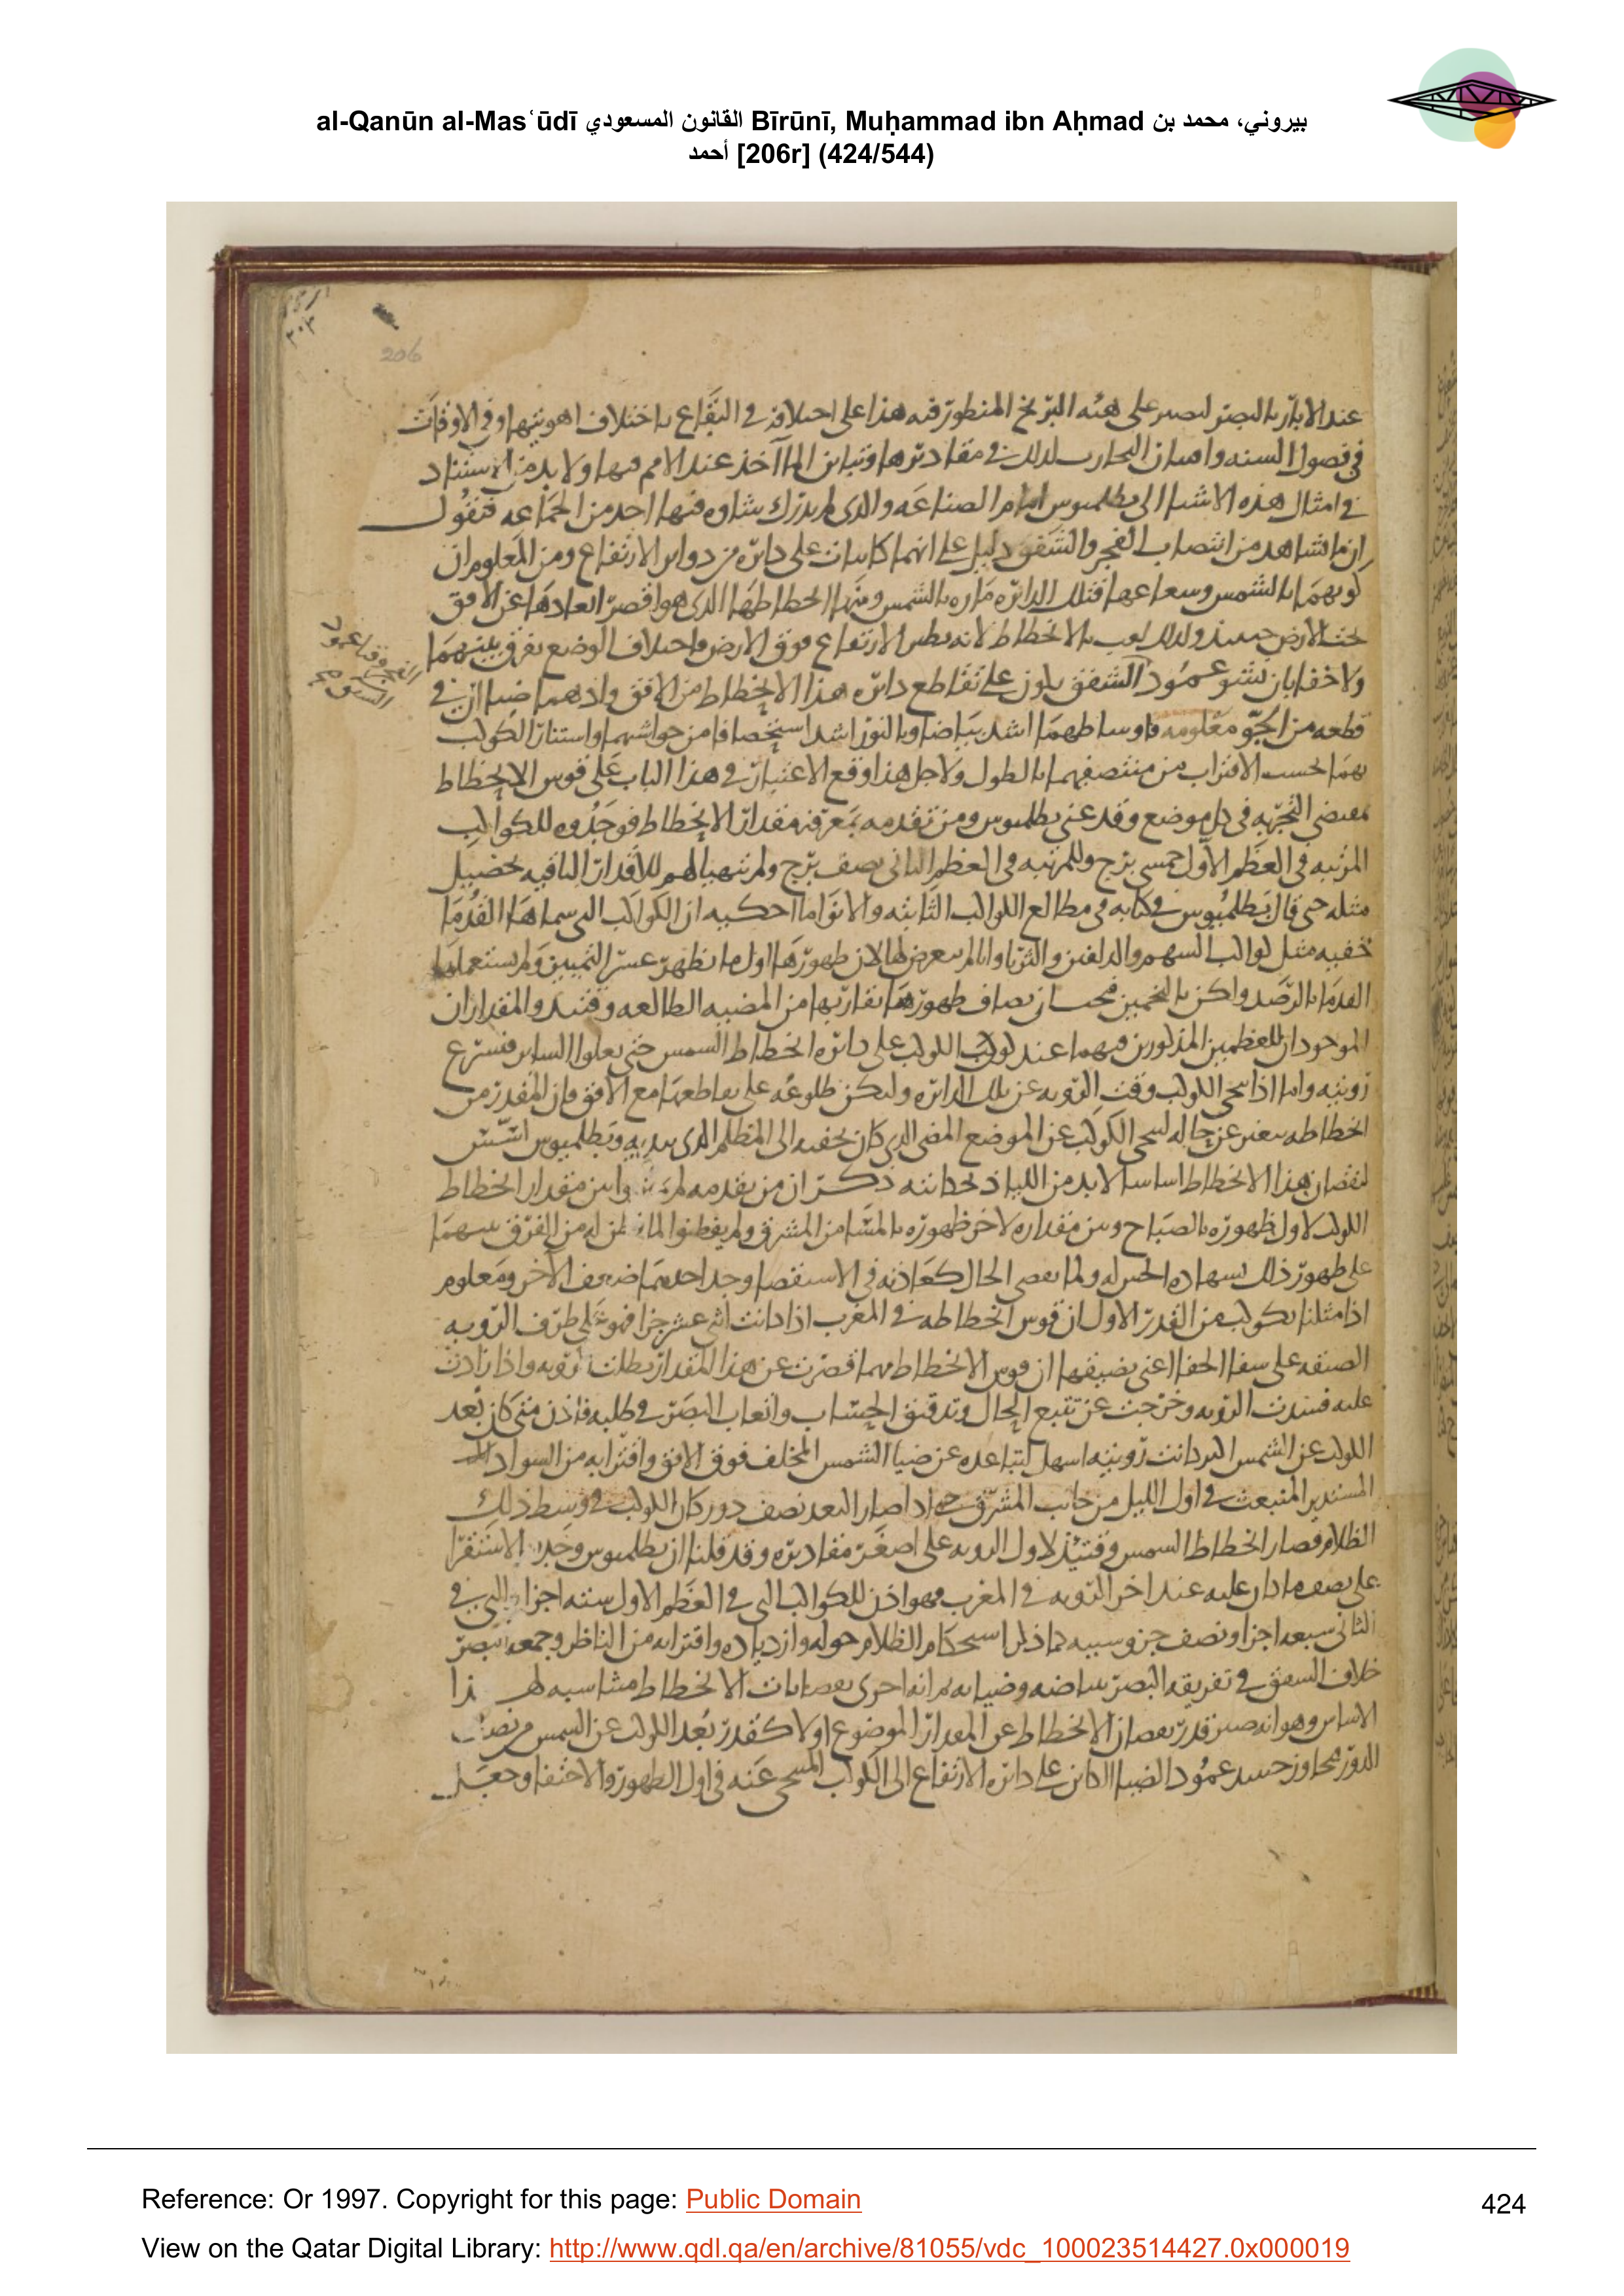 al-Qanūn al-Masʿūdī القانون المسعودي Bīrūnī, Muḥammad ibn Aḥmad بيروني، محمد بن
أحمد [206r] (424/544)
206
عند الابار بالبصر على هذا على في البقاع باختلاف اهويتها وفي الاوقات
في فصول السنه الماآخذ عند الامم فيها ولا بد من الاستناد
في امثال هذه الاشيا الى بطلميوس امام الصناعه والذى لم يدرك شاوه فيها احد من الجماعه فنقول
ان ما نشاهد من انتصاب الفجر والشفق دليل على انهما كاينان على دائره من دواير الارتفاع ومن المعلوم ان
كونهما بالشمس وشعاعها فتلك الدائره ماره بالشمس ومنها انحطاطها الذى هو اقصر ابعادها عن الافق
تحت الارض حينئذ ولذلك لقب بالانحطاط لانه نظير الارتفاع فوق الارض واختلاف الوضع يفرق بينهما
ولا خفا بان عمود الشفق يكون على تقاطع دائره هذا الانحطاط من الافق في
قطعه من الجو معلومه فاوساطهما اشد بياضا وبالنور اشد من حواشيهما واستنار الكواكب
بهما بحسب الاقتراب من منتصفهما بالطول ولاجل هذا وقع الاعتبار في هذا الباب على قوس الانحطاط
بمقتضى التجربه في كل موضع وقد عنى بطلميوس ومن تقدمه بمعرفه مقدار الانحطاط فوجدوه للكواكب
المرتبه في العظم الاول خمسى برج وللمرتبه في العظم الثانى نصف برج ولم يتهيا لهم للاقدار الباقيه تحصيل
مثله حتى قال بطلميوس في كتابه في مطالع الكواكب الثابته والانوا ما احكيه ان الكواكب التى سماها القدما
خفيه مثل كواكب السهم والدلفين والثريا وانا لم نعرض لها لان ظهورها اول ما تظهر عسر التبين ولم يستعملها
القدما بالرصد ولكن بالتخمين من المضيه الطالعه وقتئذ والمقداران
الموجودان للعظمين المذكورين فيهما عند كون الكوكب على دائره انحطاط الشمس حتى
رويته واما اذا تنحى الكوكب وقت الرويه عن تلك الدائره وليكن طلوعه على تقاطعها مع الافق فان المقدر من
انحطاطه يتغير عن حاله لتنحى الكوكب عن الموضع المضى الذى كان يخفيه الى المظلم الذى يبديه وبطلميوس اسس
لنقصان هذا الانحطاط اساسا لابد من ذكر ان من تقدمه لم مقدار انحطاط
الكوكب لاول ظهوره بالصباح وبين مقداره لاخر ظهوره بالمسا من المشرق ولم يفطنوا من الفرق بينهما
على ظهور ذلك بشهاده الحس له ولما الحال كعادته في الاستقصا وجد احدهما ضعف الآخر ومعلوم
اذا مثلنا بكوكب من القدر الاول ان قوس انحطاطه في المغرب اذا كانت اثنى عشر جزا فهو على طرف الرويه
ان قوس الانحطاط مهما قصرت عن هذا المقدار بطلت رويه واذا زادت
عليه الرويه وخرجت عن تتبع الحال وتدقيق الحساب واتعاب البصر في طلبه فاذن متى كان بعد
الكوكب عن الشمس اكبر كانت رويته اسهل لتباعده عن ضيا الشمس المخلف فوق الافق واقترابه من السواد
المستدير المنبعث في اول الليل من جانب المشرق حتى اذا صار البعد نصف دور كان الكوكب في وسط ذلك
الظلام فصار انحطاط الشمس وقتئذ لاول الرويه على اصغر مقاديره وقد قلنا ان بطلميوس وجده بالاستقرا
على نصف ما كان عليه عند اخر الرويه في المغرب فهو اذن للكواكب التى في العظم الاول سته اجزا والتى في
الثانى سبعه اجزا ونصف جزو وسببه كما ذكر استحكام الظلام حوله وازدياده واقترابه من الناظر وجمعه البصر
خلاف الشفق في تفريقه البصر ببياضه وضيايه ثم انه اجرى نقصانات الانحطاط متناسبه لهذا
الاساس وهو انه صير قدر نقصان الانحطاط عن المقدار الموضوع اولا كقدر بعد الكوكب عن الشمس من نصف
الدور عمود الضيا الكاين على دائره الارتفاع الى الكوكب المتنحى عنه في اول الظهور والاختفا وجعل
Reference: Or 1997. Copyright for this page: Public Domain
424
View on the Qatar Digital Library: http://www.qdl.qa/en/archive/81055/vdc_100023514427.0x000019